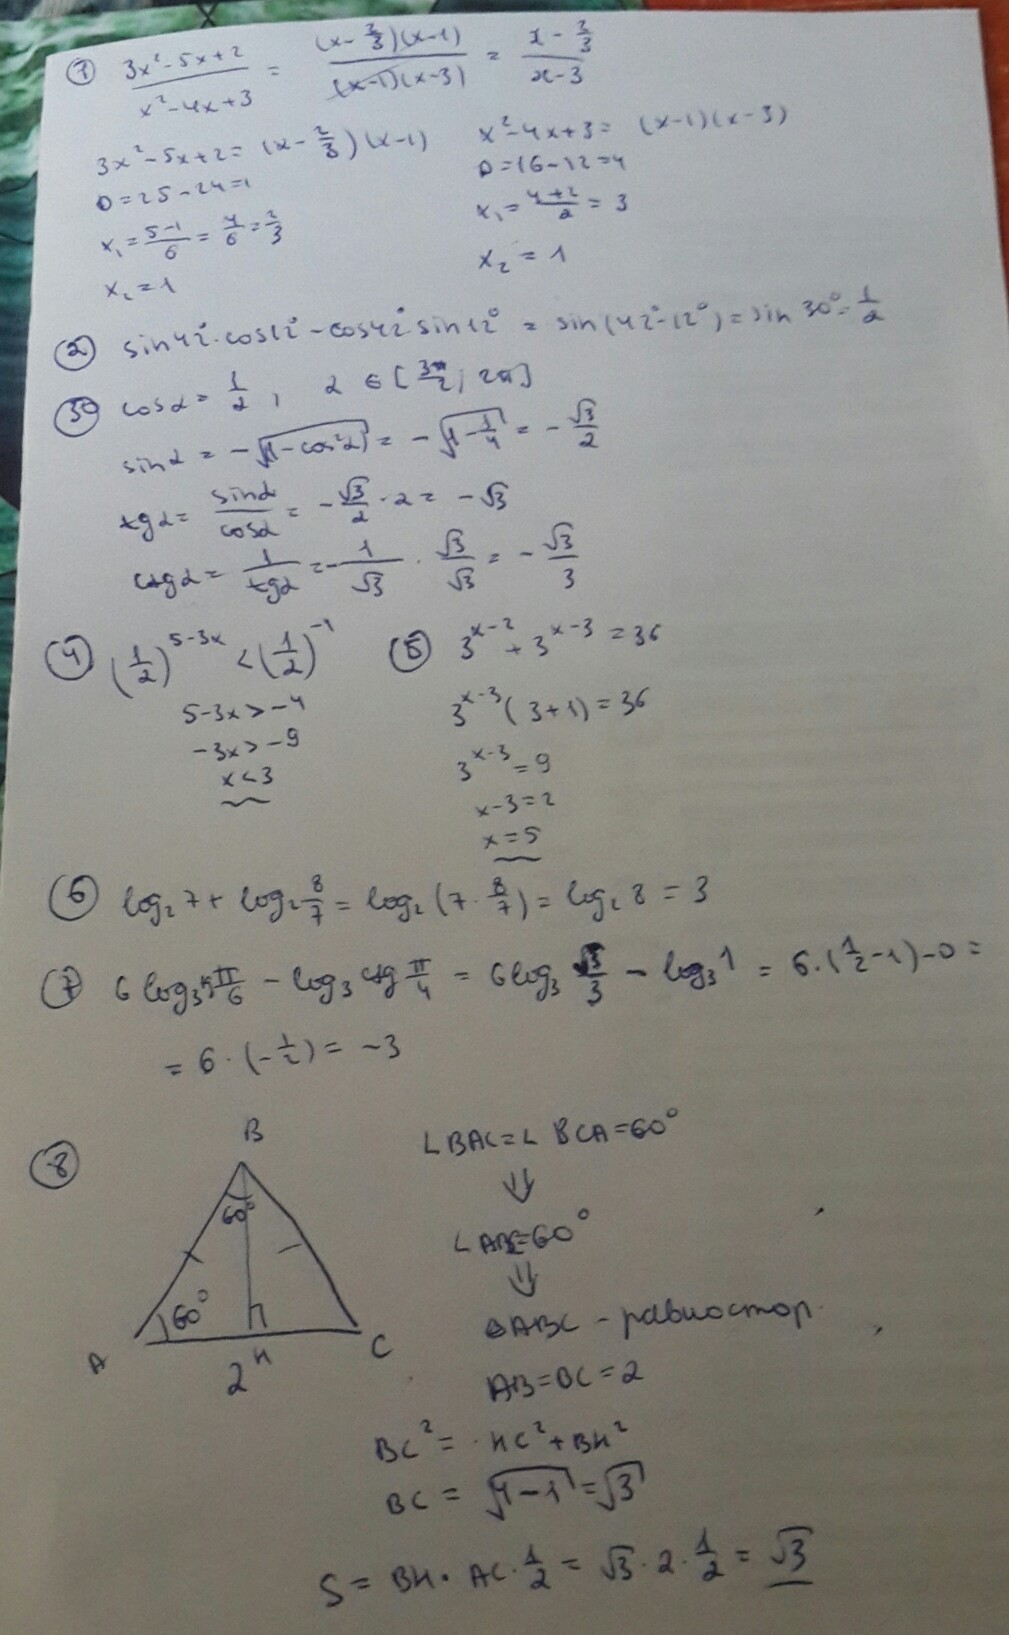 ① (3x²-5x+2)/(x²-4x+3) = ((x-2/3)(x-1))/((x-1)(x-3)) = (x-2/3)/(x-3)
3x²-5x+2 = (x-2/3)(x-1)
x²-4x+3 = (x-1)(x-3)
D=25-24=1
D=16-12=4
x₁ = (5-1)/6 = 4/6 = 2/3
x₁ = (4+2)/2 = 3
x₂ = 1
x₂ = 1
② sin42°·cos12° - cos42° sin12° = sin(42°-12°) = sin 30° = 1/2
③ cosα = 1/2, α ∈ [3π/2; 2π]
sinα = -√(1-cos²α) = -√(1-1/4) = -√3/2
tgα = sinα/cosα = -√3/2 · 2 = -√3
ctgα = 1/tgα = -1/√3 · √3/√3 = -√3/3
④ (1/2)^(5-3x) < (1/2)^(-4)
5-3x > -4
-3x > -9
x < 3
⑤ 3^(x-2) + 3^(x-3) = 36
3^(x-3) (3+1) = 36
3^(x-3) = 9
x-3 = 2
x = 5
⑥ log₂ 7 + log₂ 8/7 = log₂ (7 · 8/7) = log₂ 8 = 3
⑦ 6 log₃ tg π/6 - log₃ ctg π/4 = 6 log₃ √3/3 - log₃ 1 = 6·(1/2 - 1) - 0 =
= 6 · (-1/2) = -3
⑧
B
60°
60°
A
H
C
2
∠BAC = ∠BCA = 60°
⇓
∠ABC = 60°
⇓
△ABC - равностор.
AB = BC = 2
BC² = HC² + BH²
BC = √(4-1) = √3
S = BH · AC · 1/2 = √3 · 2 · 1/2 = √3